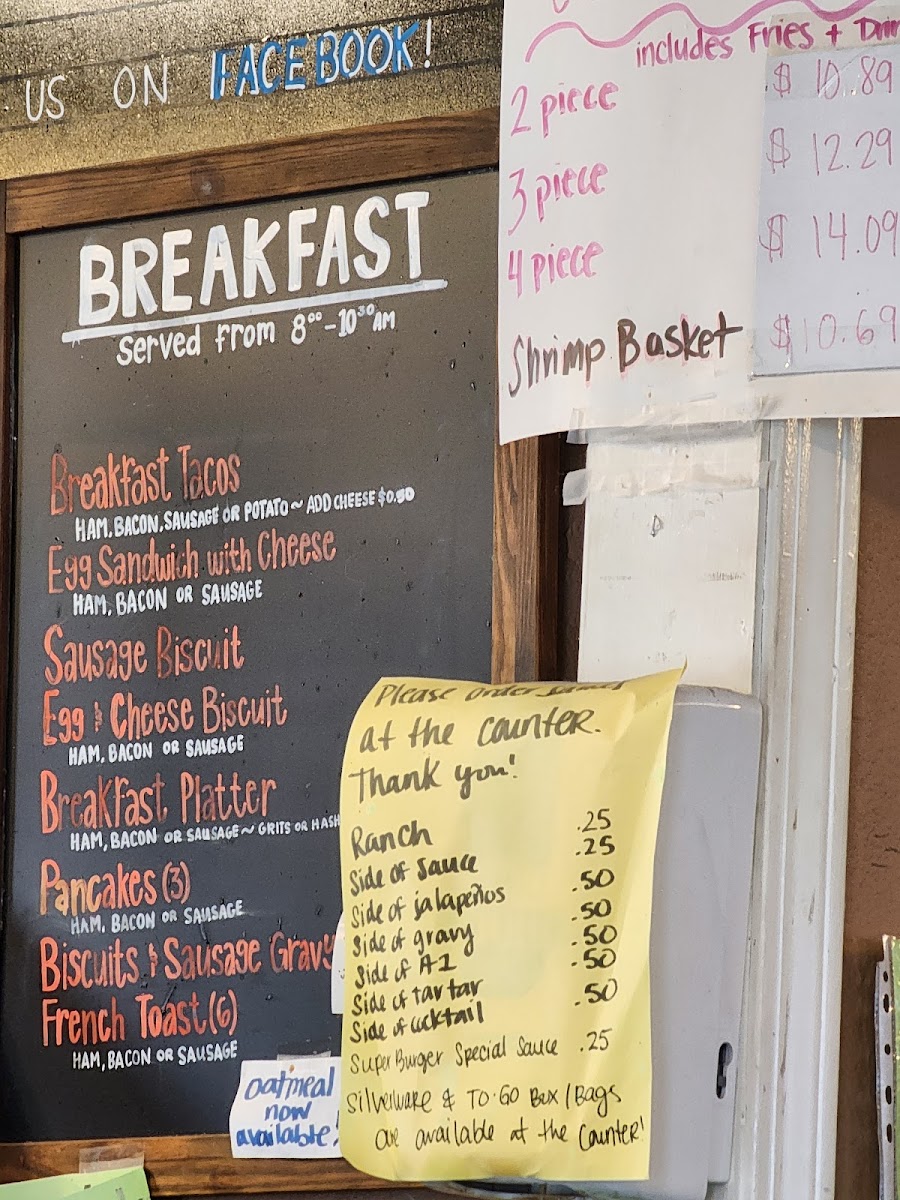 US ON FACEBOOK!
BREAKFAST
Served from 8⁰⁰-10³⁰AM
Breakfast Tacos
HAM, BACON, SAUSAGE OR POTATO ~ ADD CHEESE $0.50
Egg Sandwich with Cheese
HAM, BACON OR SAUSAGE
Sausage Biscuit
Egg & Cheese Biscuit
HAM, BACON OR SAUSAGE
Breakfast Platter
HAM, BACON OR SAUSAGE ~ GRITS OR HASH
Pancakes (3)
HAM, BACON OR SAUSAGE
Biscuits & Sausage Gravy
French Toast (6)
HAM, BACON OR SAUSAGE
oatmeal
now
available!
includes Fries + Drin
2 piece $10.89
3 piece $12.29
4 piece $14.09
Shrimp Basket $10.69
Please order
at the counter.
Thank you!
Ranch .25
Side of Sauce .25
Side of jalapeños .50
Side of gravy .50
Side of A1 .50
Side of tartar .50
Side of cocktail .50
Super Burger Special Sauce .25
Silverware & TO-GO Box/Bags
are available at the counter!